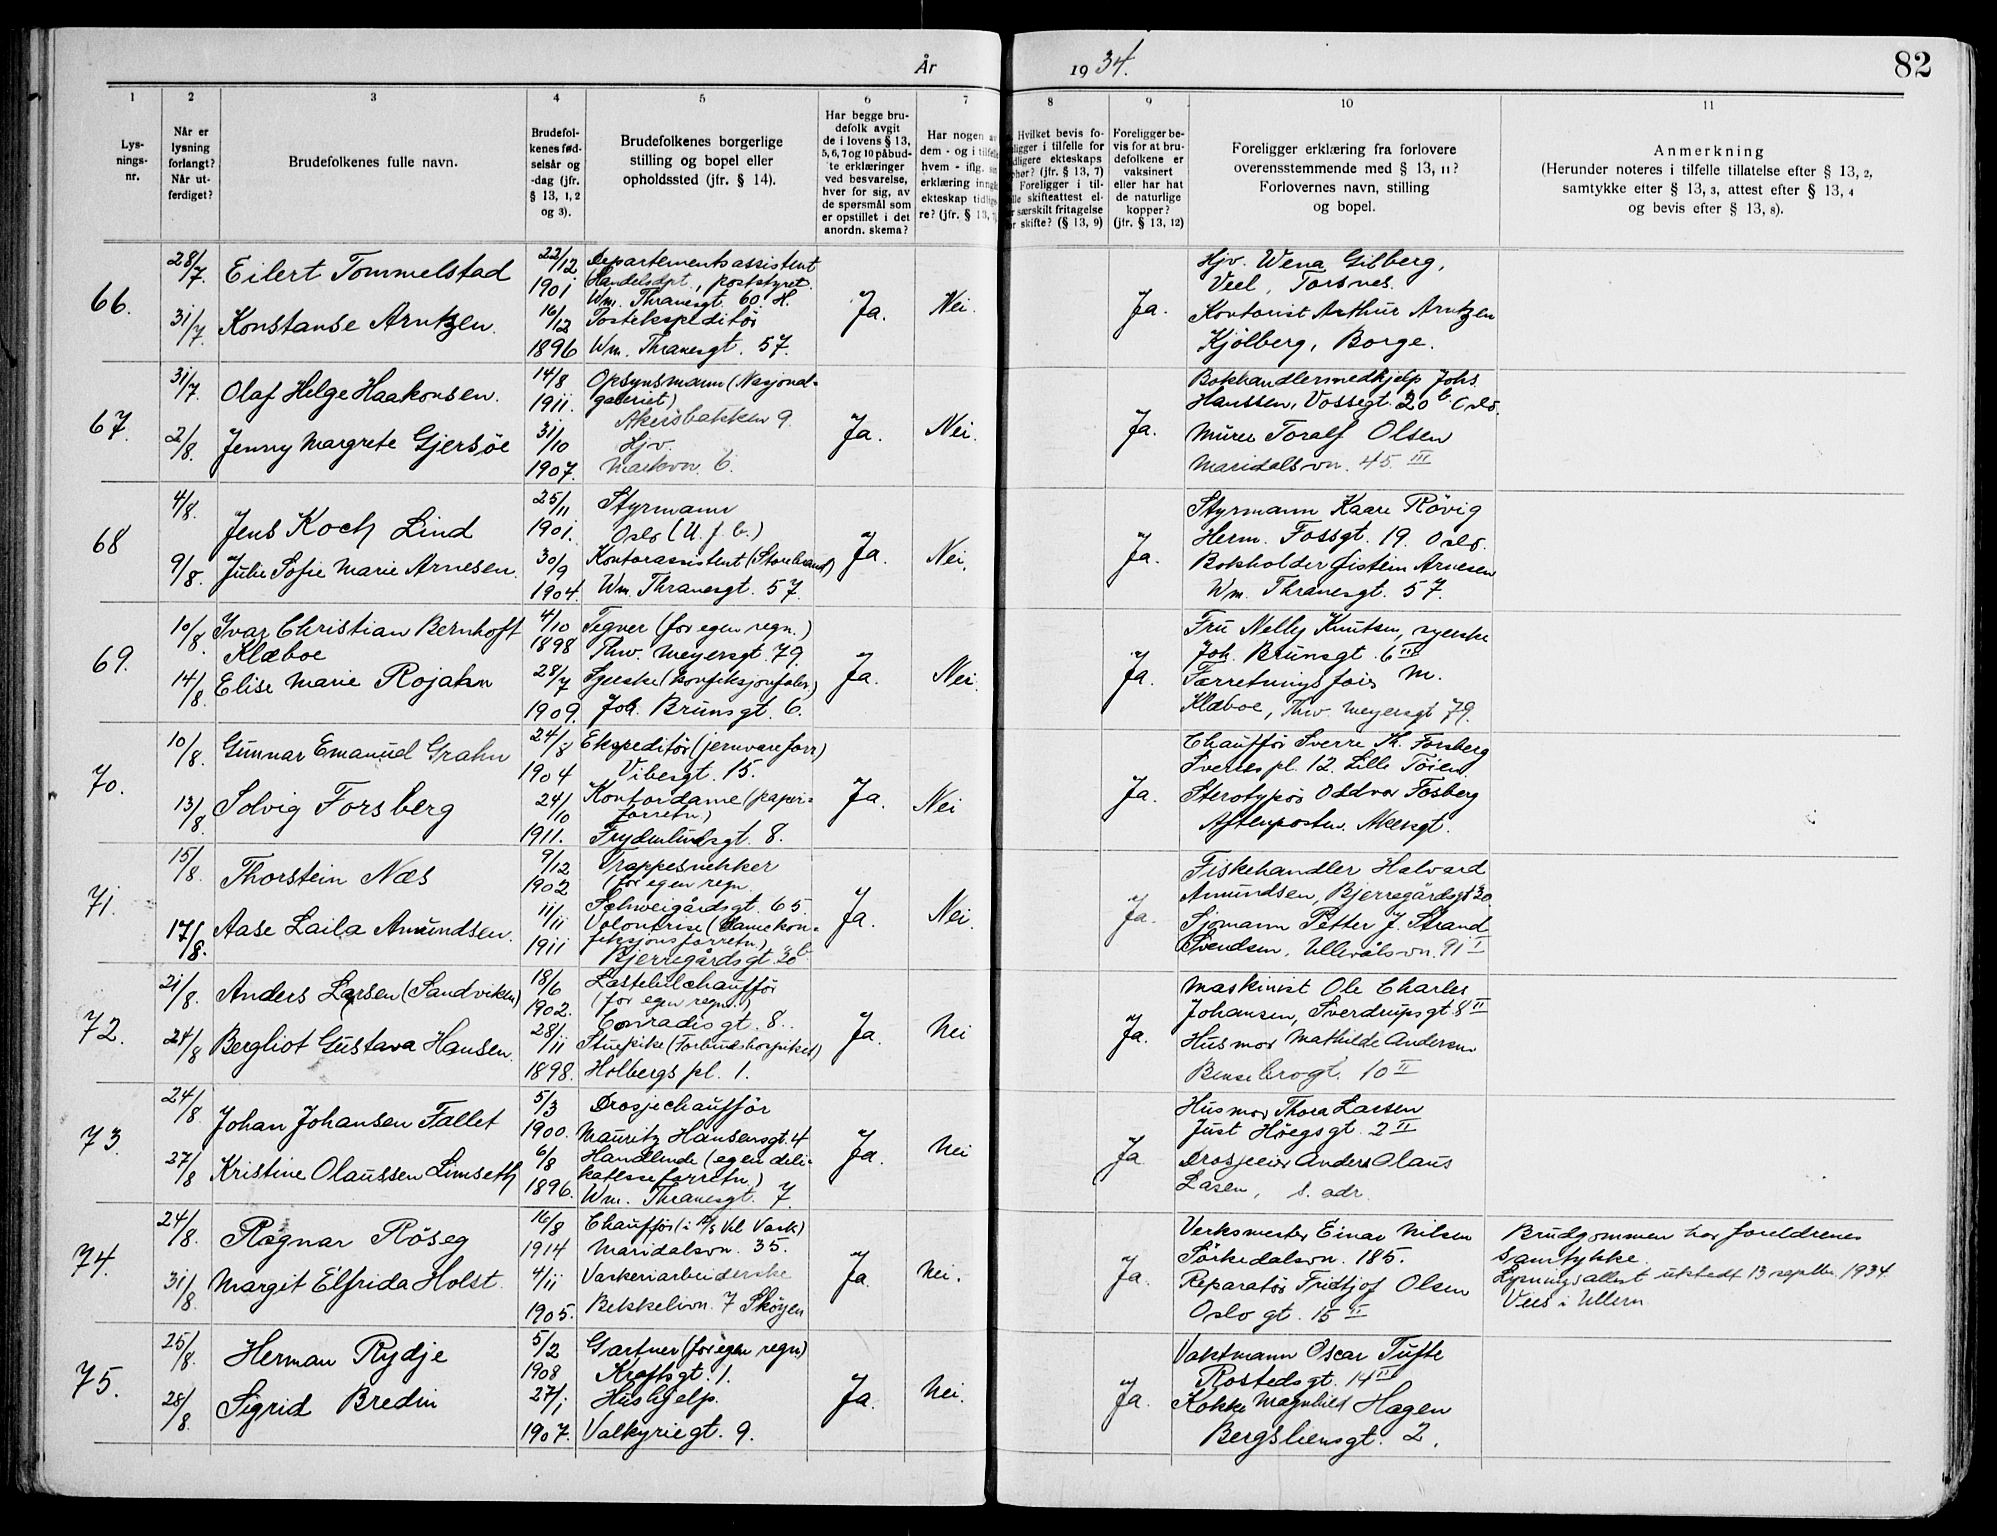 År 1934.
82
1 2 3 4 5 6 7 8 9 10 11
Lys-
nings-
nr.
Når er
lysning
forlangt?
Når ut-
ferdiget?
Brudefolkenes fulle navn.
Brudefol-
kenes fød-
selsår og
-dag (jfr.
§ 13, 1, 2
og 3).
Brudefolkenes borgerlige
stilling og bopel eller
opholdssted (jfr. § 14).
Har begge bru-
defolk avgit
de i lovens § 13,
5, 6, 7 og 10 påbud-
te erklæringer
ved besvarelse,
hver for sig, av
de spørsmål som
er opstillet i det
anordn. skema?
Har nogen av
dem - og i tilfelle
hvem - iflg. sin
erklæring inngå
ekteskap tidlige-
re? (jfr. § 13, 7)
Hvilket bevis fo-
ligger i tilfelle for
tidligere ekteskaps
ophør? (jfr. § 13, 7)
Foreligger i til-
felle skifteattest el-
ler særskilt fritagelse
for skifte? (§ 13, 9)
Foreligger be-
vis for at bru-
defolkene er
vaksinert
eller har hat
de naturlige
kopper?
(jfr. § 13, 12)
Foreligger erklæring fra forlovere
overensstemmende med § 13, 11?
Forlovernes navn, stilling
og bopel.
Anmerkning
(Herunder noteres i tilfelle tillatelse efter § 13, 2,
samtykke efter § 13, 3, attest efter § 13, 4
og bevis efter § 13, 8).
66.
28/7.
31/7.
Eilert Tommelstad
Konstanse Arntzen.
22/12
1901
16/12
1896
Departementsassistent
(Handelsdpt., poststyret.
Wm. Thranesgt. 60. H.
Postekspeditør
Wm. Thranesgt. 57.
Ja.
Nei.
Ja.
Hjv. Wena Gilberg,
Veel, Torsnes.
Kontorist Arthur Arntzen
Kjølberg, Borge.
67.
31/7.
2/8.
Olaf Helge Haakonsen.
Jenny Margrete Gjersøe
14/8
1911.
31/10
1907.
Opsynsmann (Nasjonal-
galeriet)
Akersbakken 9.
Hjv.
Markvn. 6.
Ja.
Nei.
Ja.
Bokhandlermedhjelp Johs.
Hanssen, Vossegt. 20 b. Oslo.
Murer Toralf Olsen
Maridalsvn. 45 III
68
4/8.
9/8.
Jens Koch Lind
Julie Sofie Marie Arnesen.
25/11
1901.
30/9
1904.
Styrmann
Oslo (U. f. b.)
Kontorassistent (Storebrand)
Wm. Thranesgt. 57.
Ja.
Nei.
Ja.
Styrmann Kaare Rövig
Herm. Fossgt. 19. Oslo.
Bokholder Øistein Arnesen
Wm. Thranesgt. 57.
69.
10/8.
14/8.
Ivar Christian Bernhoft
Klæboe
Elise Marie Rojahn
4/10
1898
28/7
1909.
Tegner (for egen regn.)
Thv. Meyersgt. 79.
Syerske (konfeksjonsfabr.)
Joh. Brunsgt. 6.
Ja.
Nei.
Ja.
Fru Nelly Knutsen, syerske
Joh. Brunsgt. 6 III
Forretningsfører M.
Klæboe, Thv. Meyersgt 79.
70.
10/8.
13/8.
Gunnar Emanuel Grahn
Solvig Forsberg
24/8
1904
24/10
1911.
Ekspeditør (jernvareforr)
Vibesgt. 15.
Kontordame (papir-
forretn.)
Frydenlundsgt. 8.
Ja.
Nei
Ja.
Chauffør Sverre Th. Forsberg
Sverres pl. 12. Lille Töien.
Sterotypör Oddvar Fosberg
Aftenposten. Akersgt.
71.
15/8.
17/8.
Thorstein Næs
Aase Laila Amundsen.
9/12
1902
11/11
1911
Trappesnekker
(for egen regn.
Schweigårdsgt. 65.
Volontrise (Damekon-
feksjonsforretn.)
Bjerregårdsgt. 30 b
Ja.
Nei.
Ja.
Fiskehandler Halvard
Amundsen, Bjerregårdsgt 30.
Sjömann Petter J. Strand
Svendsen, Ullevålsvn. 91 I
72.
21/8.
24/8
Anders Larsen (Sandviken)
Bergliot Gustava Hansen.
18/6
1902.
28/11
1898.
Lastebilchauffør
(for egen regn.)
Conradis gt. 8.
Stuepike (Forbundshospitset)
Holbergs pl. 1.
Ja.
Nei
Ja.
Maskinist Ole Charles
Johansen, Sverdrupsgt 8 II
Husmor Mathilde Andersen
Bensebrogt. 10 II
73.
24/8
27/8
Johan Johansen Fallet
Kristine Olaussen Limseth
5/3
1900.
6/8
1896.
Drosjechauffør
Mauritz Hansensgt. 4
Handlende (egen deli-
katesseforretn.)
Wm. Thranesgt. 7.
Ja.
Nei
Ja
Husmor Thora Larsen
Just Höegsgt. 2 II
Drosjeeier Anders Olaus
Lasen, s. adr.
74.
24/8.
31/8.
Ragnar Röseg
Margit Elfrida Holst.
16/8
1914
4/11
1905.
Chauffør (i A/S Vel Vask)
Maridalsvn. 35.
Vaskeriarbeiderske
Bekkelivn. 7 Skøyen
Ja.
Nei.
Ja.
Verksmester Einar Nilsen
Sörkedalsvn. 185.
Reparatør Fridtjof Olsen
Oslo gt. 15 II
Brudgommen har foreldrenes
samtykke.
Lysningsattest utstedt 13 septbr. 1934.
Vies i Ullern
75.
25/8.
28/8.
Herman Rydje
Sigrid Bredin
5/2
1908
27/1
1907.
Gartner (for egen regn)
Kraftsgt. 1.
Hushjelp.
Valkyriegt. 9.
Ja.
Nei.
Ja.
Vaktmann Oscar Tufte
Rostedsgt. 14 II
Kokke Magnhild Hagen
Bergsliensgt. 2.